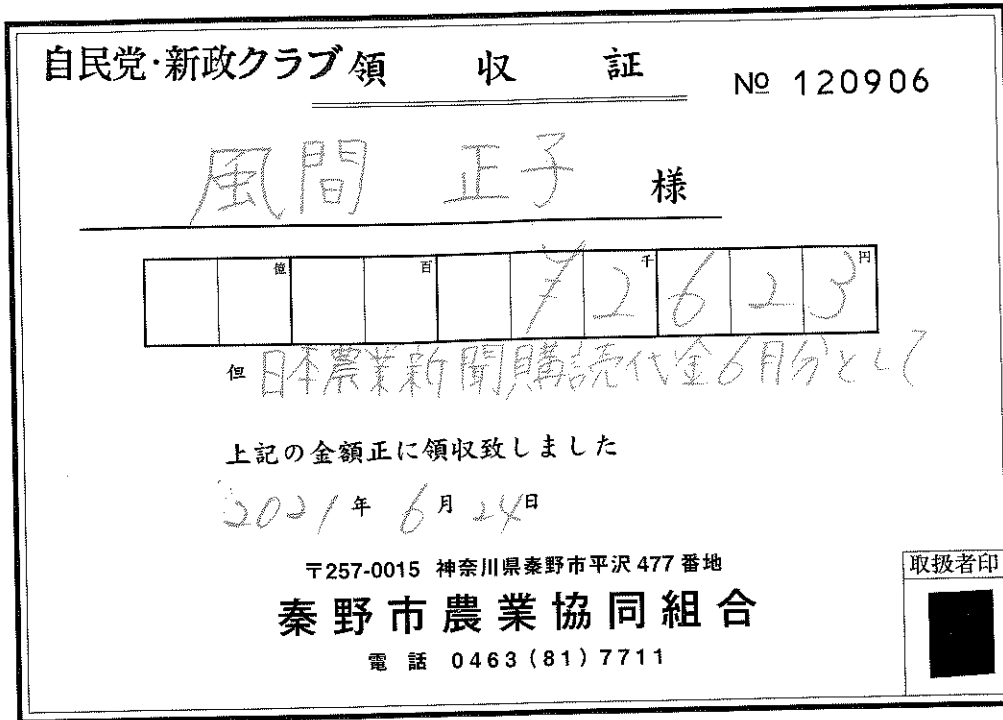 自民党・新政クラブ 領 収 証 № 120906
風間 正子 様
億 百 千 円
¥2623
但 日本農業新聞購読代金6月分として
上記の金額正に領収致しました
2021年 6月 24日
〒257-0015 神奈川県秦野市平沢 477 番地
取扱者印
秦野市農業協同組合
電 話 0463 (81) 7711